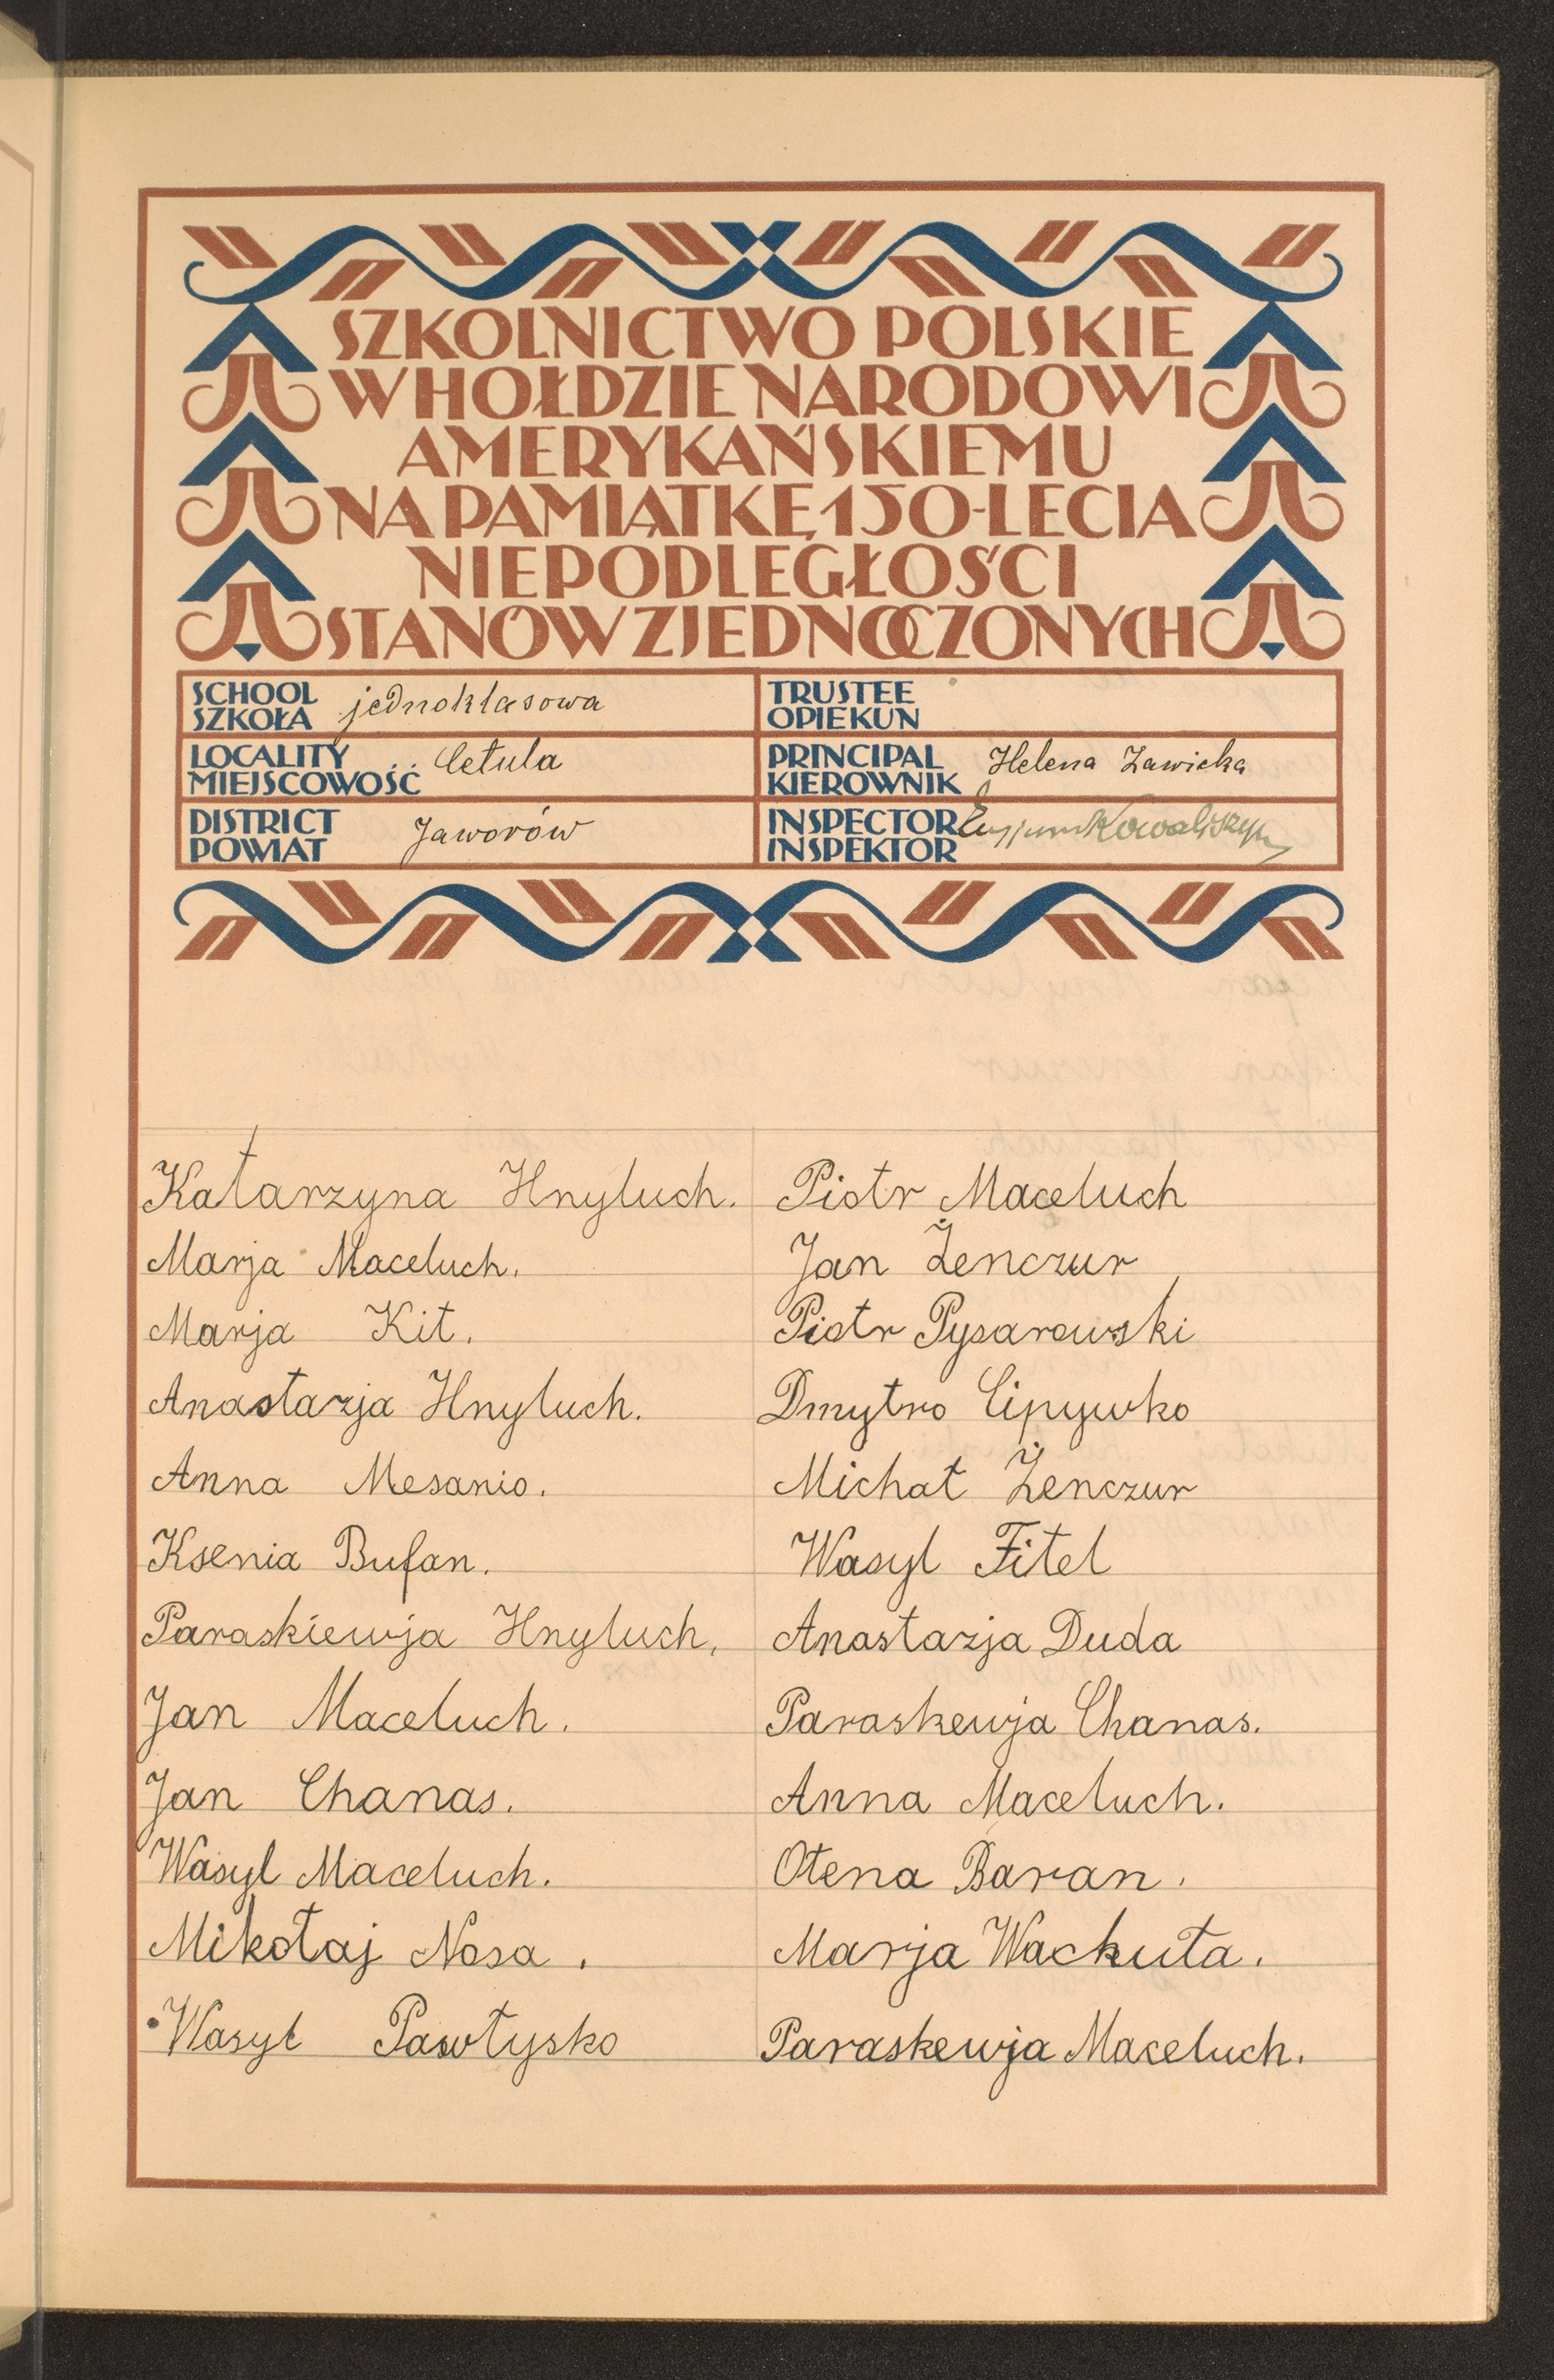 SZKOLNICTWO POLSKIE
W HOŁDZIE NARODOWI
AMERYKAŃSKIEMU
NA PAMIĄTKĘ 150-LECIA
NIEPODLEGŁOŚCI
STANÓW ZJEDNOCZONYCH
SCHOOL
SZKOŁA jednoklasowa
TRUSTEE
OPIEKUN
LOCALITY
MIEJSCOWOŚĆ Cetula
PRINCIPAL
KIEROWNIK Helena Zawicka
DISTRICT
POWIAT Jaworów
INSPECTOR
INSPEKTOR Kowaliszyn
Katarzyna Hnyluch.
Marja Maceluch.
Marja Kit.
Anastazja Hnyluch.
Anna Mesanio.
Ksenia Bufan.
Paraskiewja Hnyluch.
Jan Maceluch.
Jan Chanas.
Wasyl Maceluch.
Mikołaj Nosa.
Wasyl Pawłysko
Piotr Maceluch
Jan Żenczur
Piotr Pysarowski
Dmytro Cipywko
Michał Żenczur
Wasyl Fitel
Anastazja Duda
Paraskewja Chanas.
Anna Maceluch.
Ołena Baran.
Marja Wachuta.
Paraskewja Maceluch.